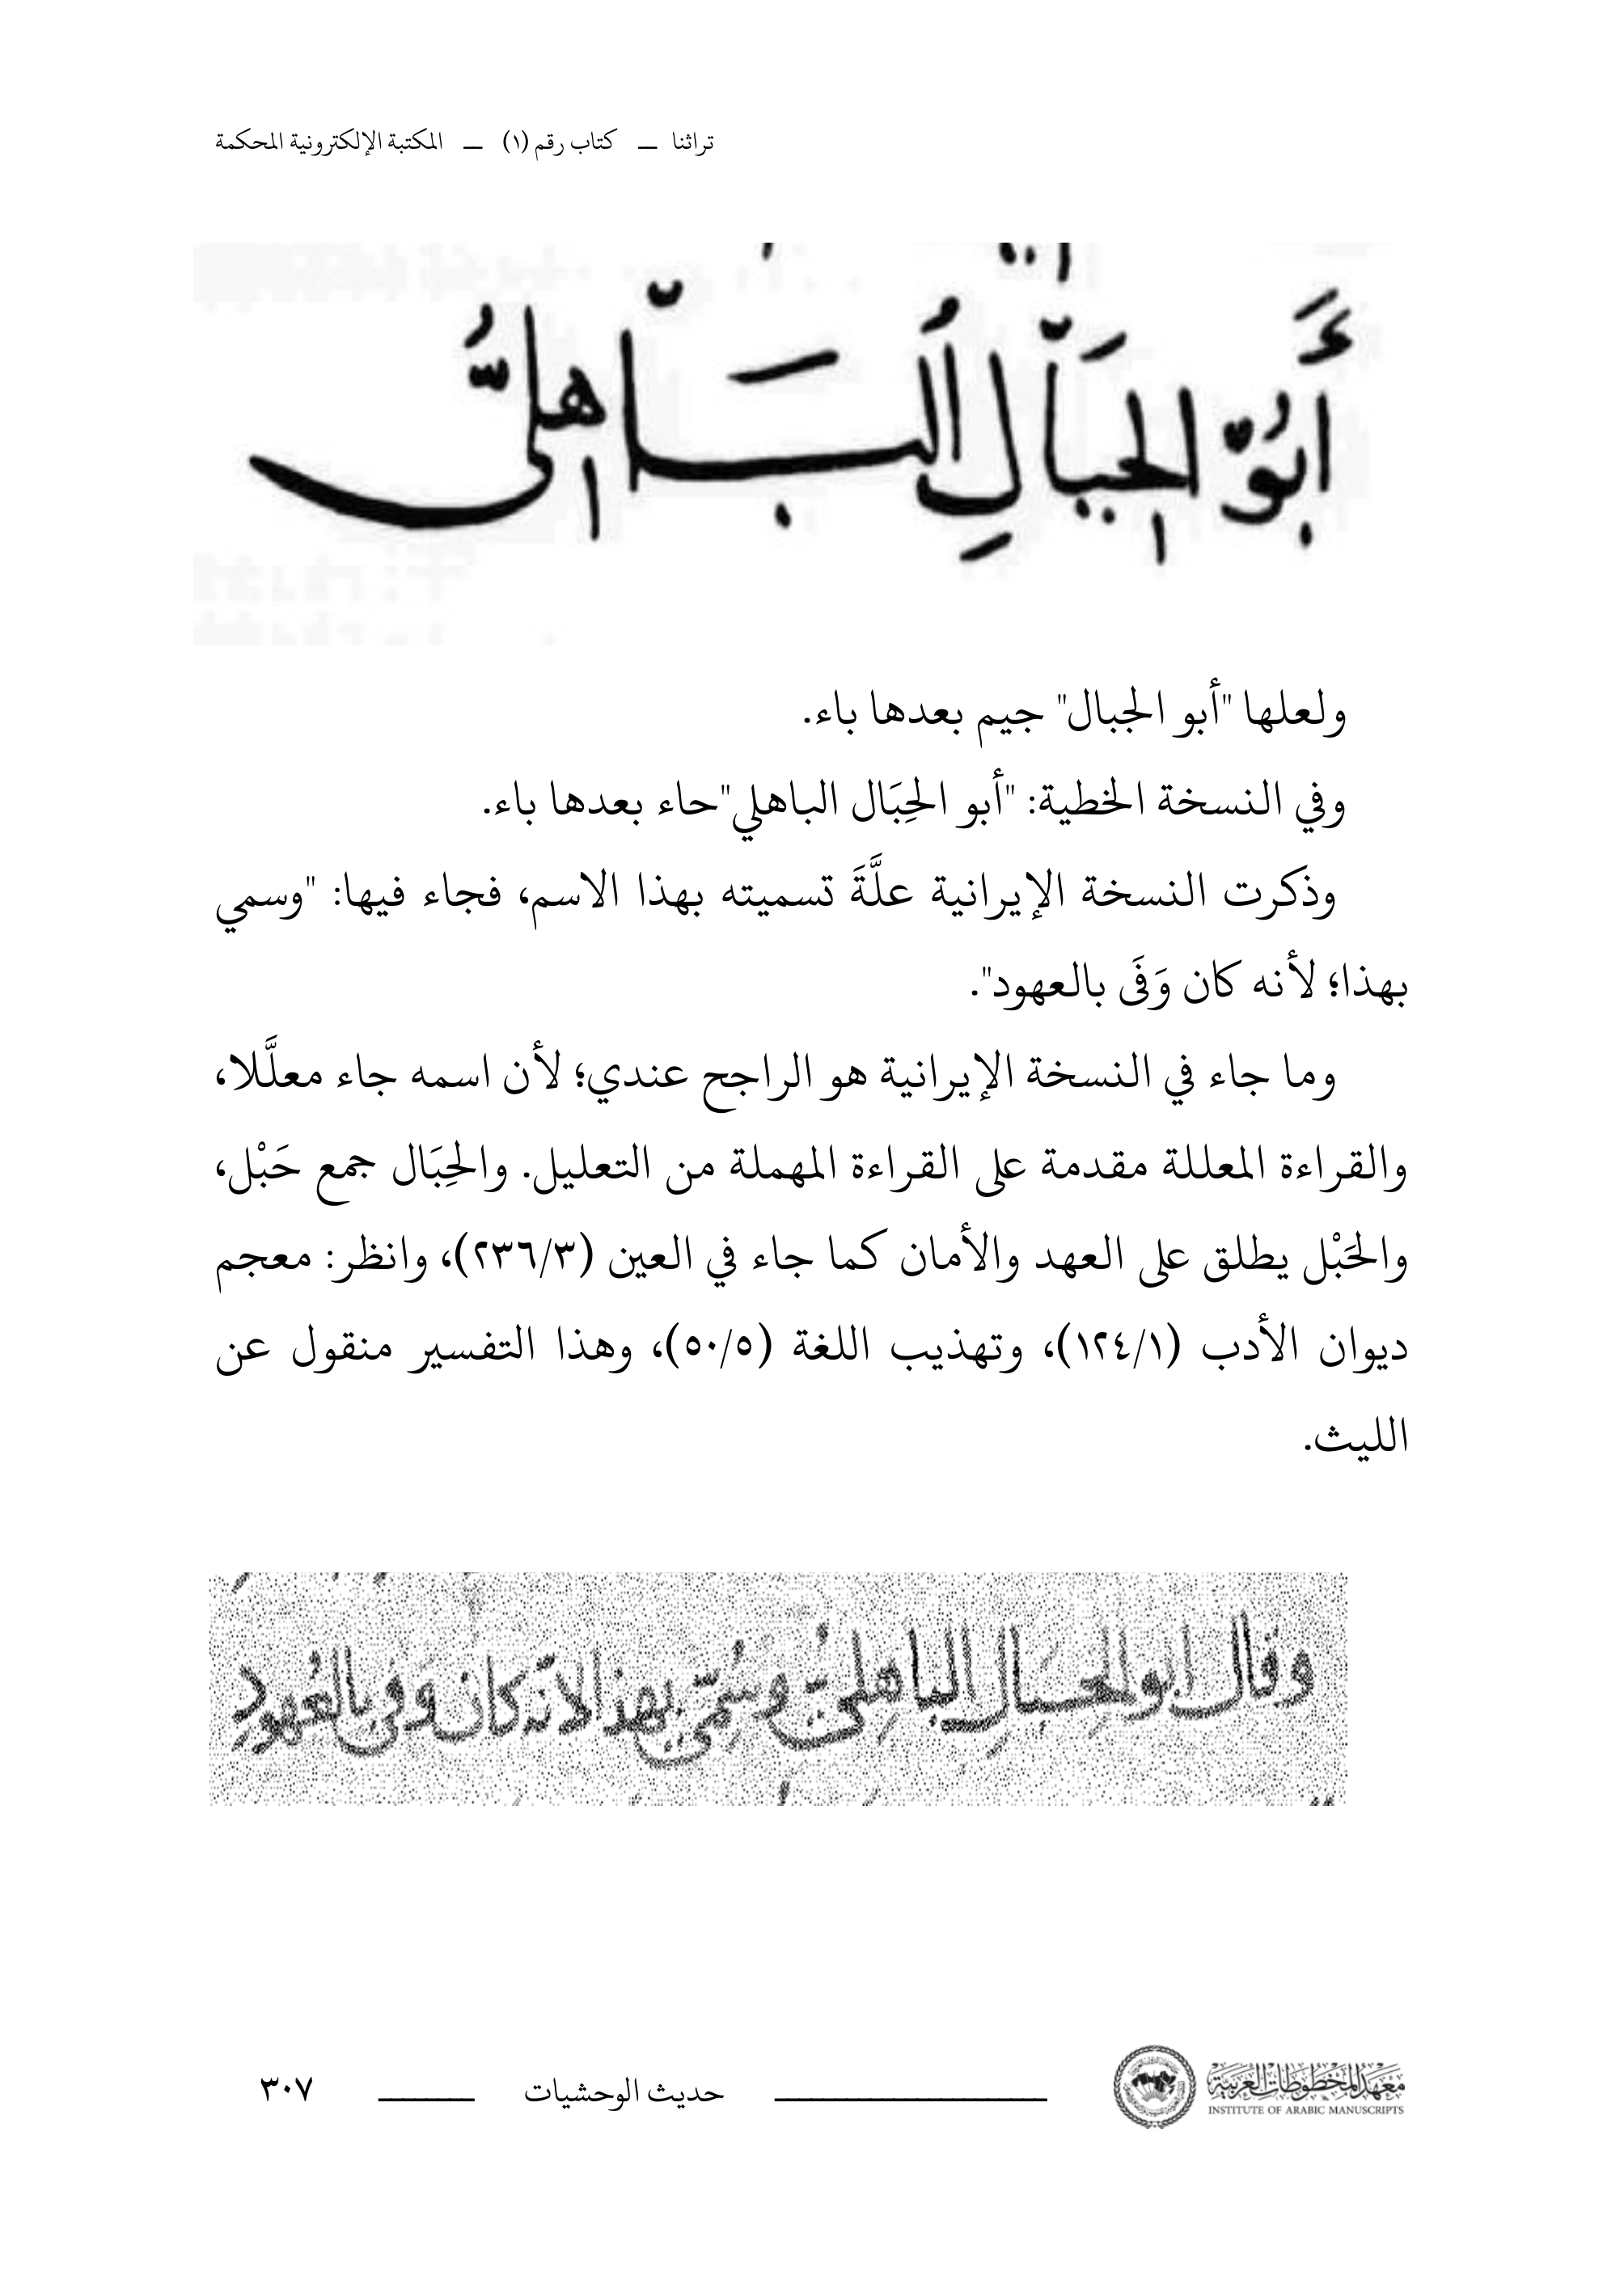 تراثنا — كتاب رقم (١) — المكتبة الإلكترونية المحكمة
أَبُوّ الجَبَّالِ البَّاهلىُّ
ولعلها "أبو الجبال" جيم بعدها باء.
وفي النسخة الخطية: "أبو الحِبَال الباهلي"حاء بعدها باء.
وذكرت النسخة الإيرانية علَّةَ تسميته بهذا الاسم، فجاء فيها: "وسمي
بهذا؛ لأنه كان وَفَى بالعهود".
وما جاء في النسخة الإيرانية هو الراجح عندي؛ لأن اسمه جاء معلَّلا،
والقراءة المعللة مقدمة على القراءة المهملة من التعليل. والحِبَال جمع حَبْل،
والحَبْل يطلق على العهد والأمان كما جاء في العين (٢٣٦/٣)، وانظر: معجم
ديوان الأدب (١٢٤/١)، وتهذيب اللغة (٥٠/٥)، وهذا التفسير منقول عن
الليث.
وقال ابو الحِبَال الباهِلىُّ وسُمِّىَ بهذا لانّه كان وَفى بالعُهودِ
معهد المخطوطات العربية
INSTITUTE OF ARABIC MANUSCRIPTS
حديث الوحشيات
٣٠٧